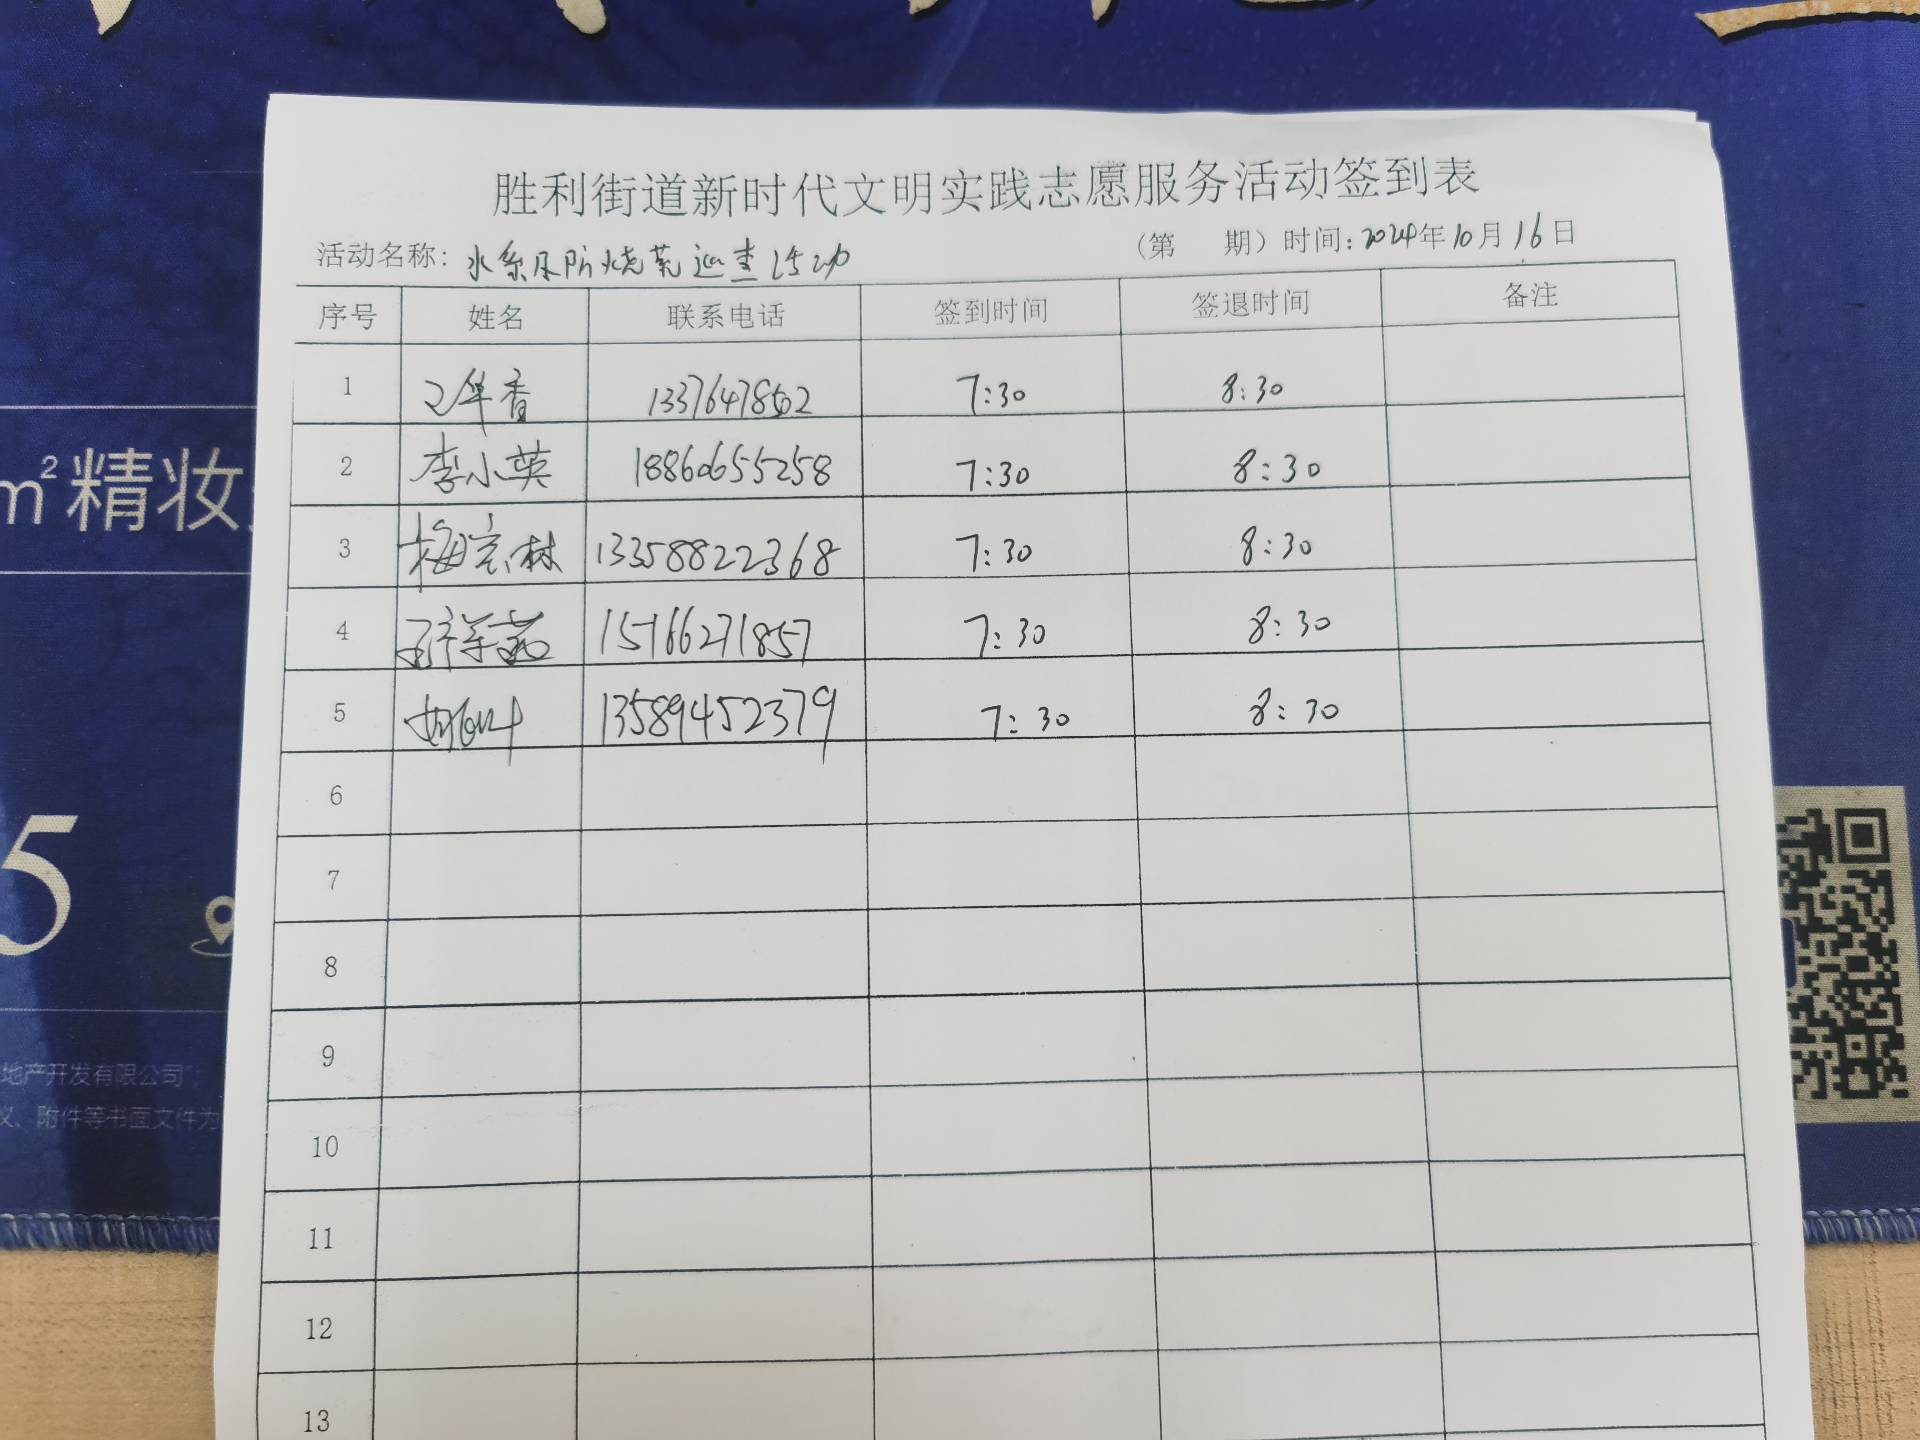 胜利街道新时代文明实践志愿服务活动签到表
活动名称：水系及防烧荒巡查活动 （第 期）时间：2024年10月16日
序号 姓名 联系电话 签到时间 签退时间 备注
1 香 7:30 8:30
2 李小英 18860655258 7:30 8:30
3 梅 林 13358822368 7:30 8:30
4 15166271857 7:30 8:30
5 13589452379 7:30 8:30
6
7
8
9
10
11
12
13
m²精妆
5
地产开发有限公司"；
议、附件等书面文件为